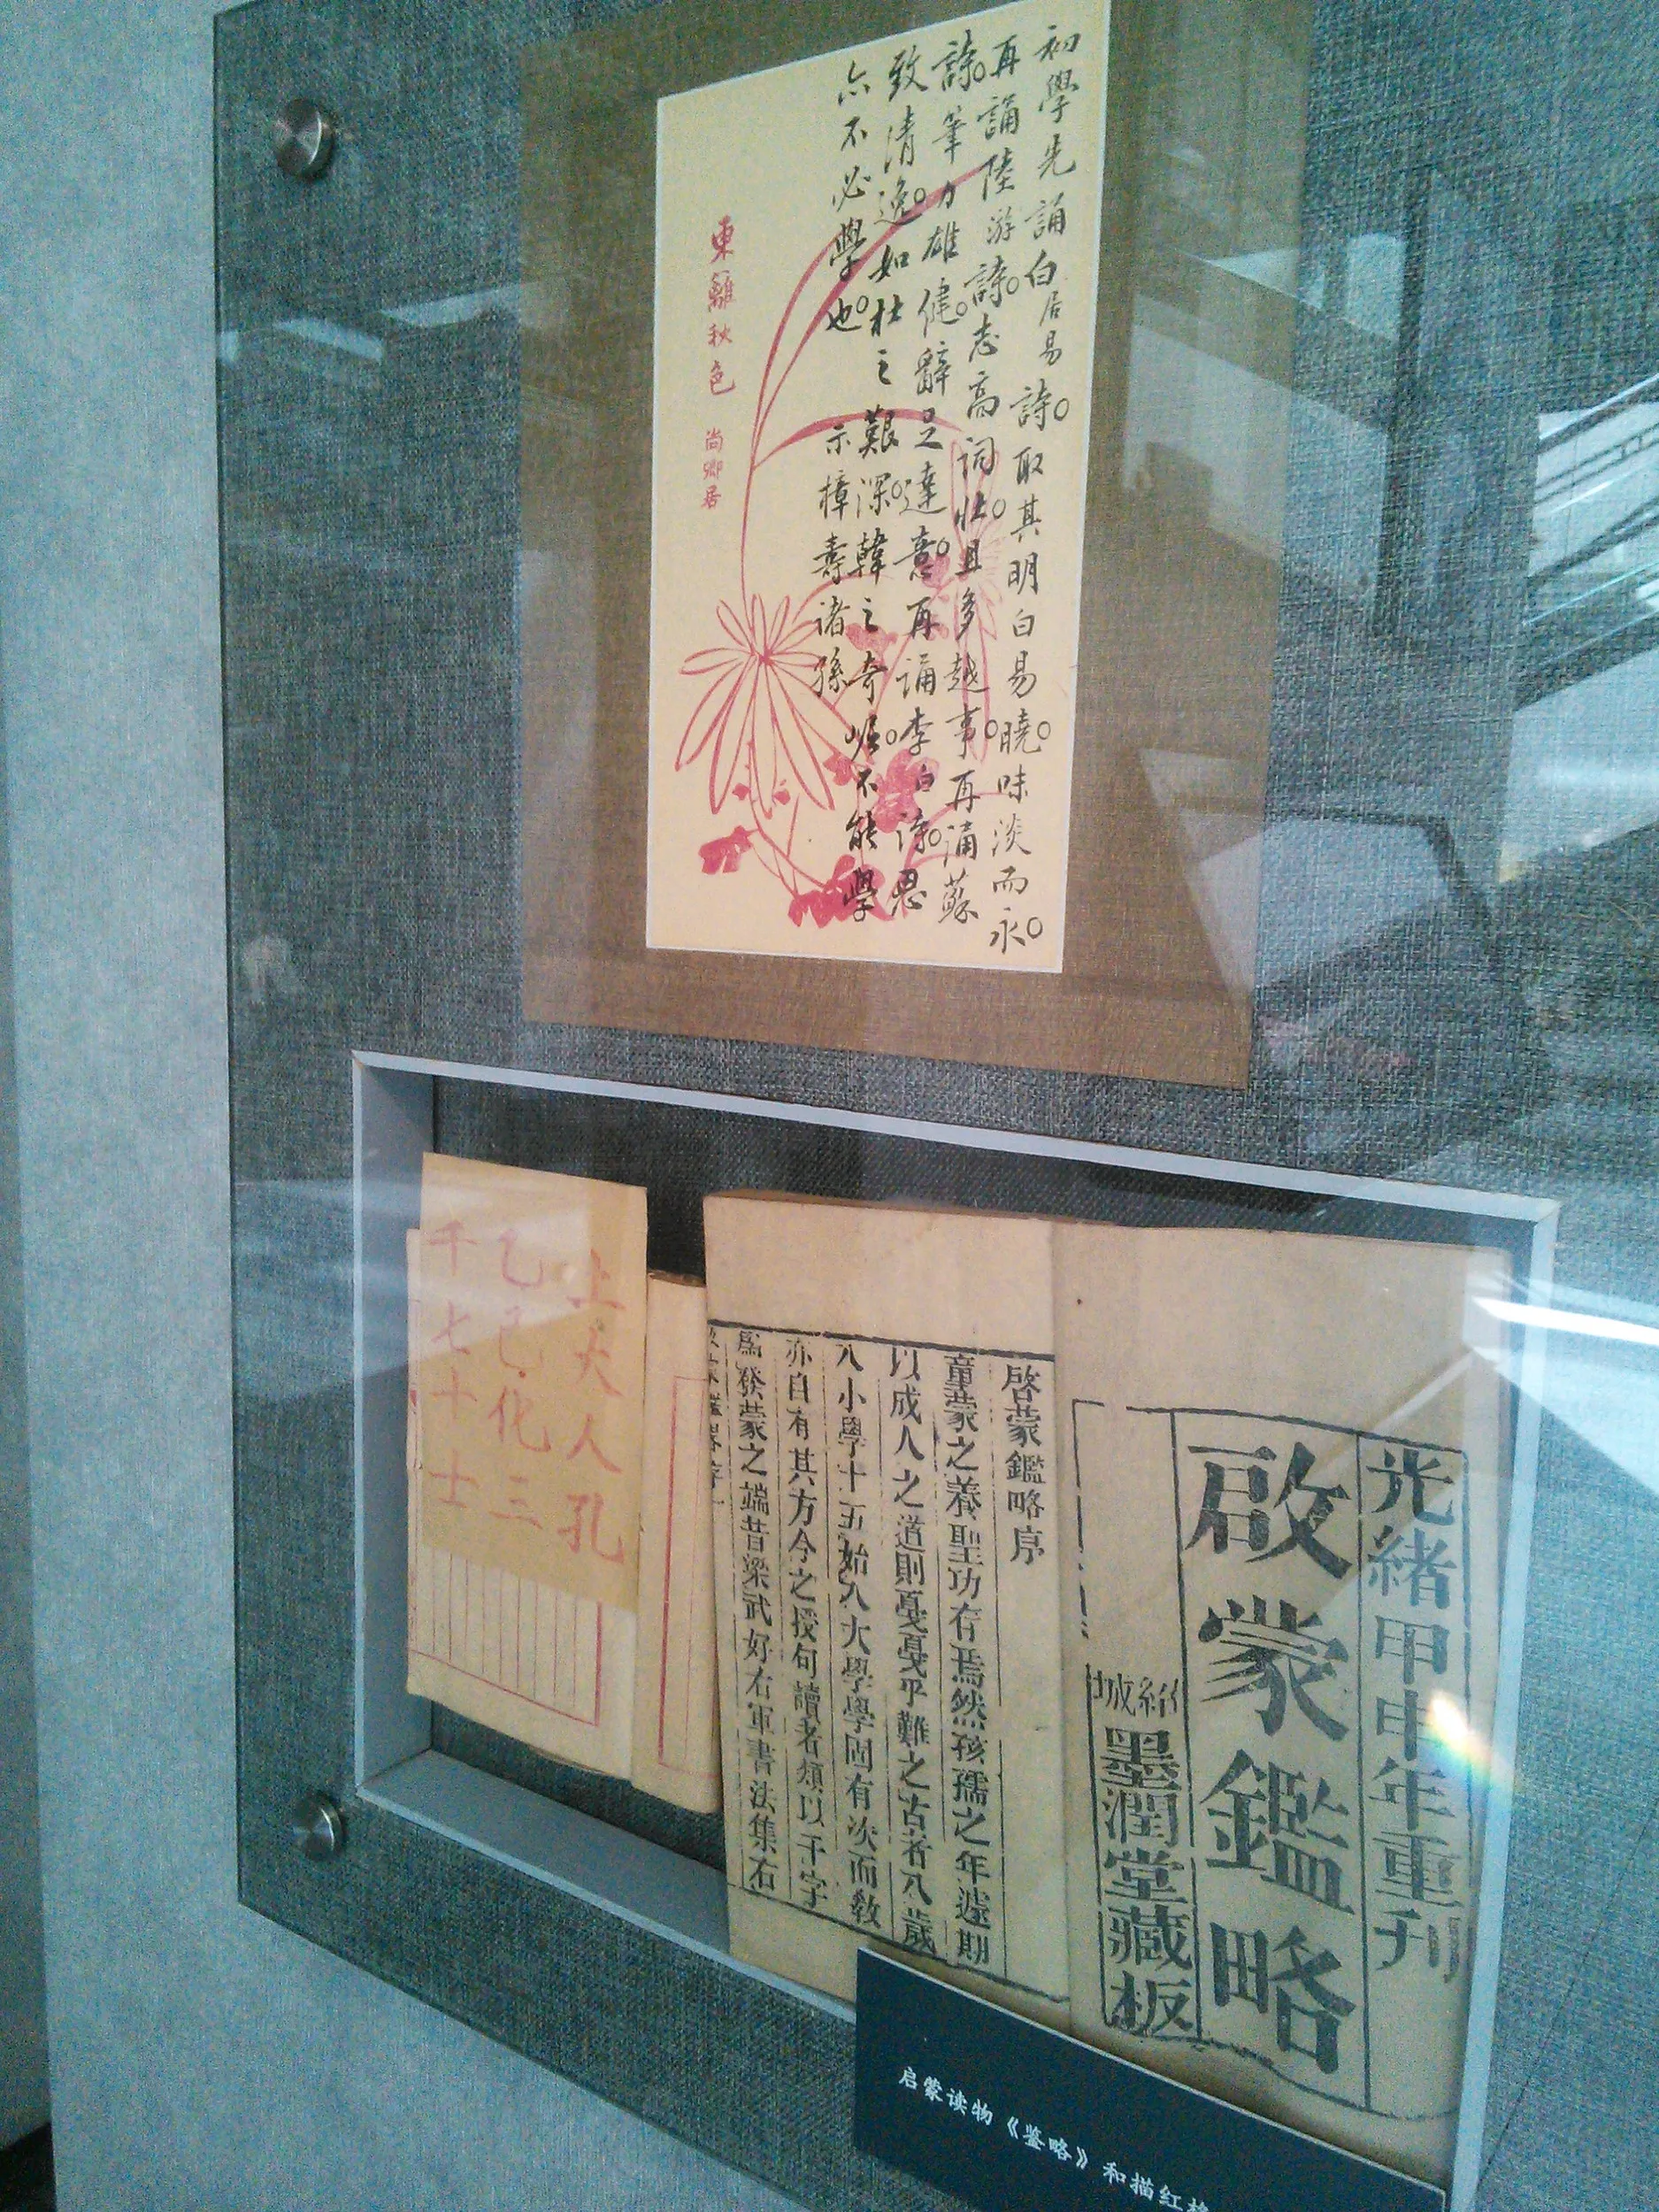 初學先誦白居易詩。取其明白易曉。味淡而永。
再誦陸游詩。志高詞壯。且多越事。再誦蘇
詩。筆力雄健。辭足達意。再誦李白詩。思
致清逸。如杜之艱深。韓之奇崛。不能學
亦不必學也。示樟壽諸孫
東籬秋色 尚卿居
光緒甲申年重刊
啟蒙鑑略
紹城墨潤堂藏板
啓蒙鑑略序
童蒙之養聖功在焉然孩孺之年遽期
以成人之道則戛戛乎難之古者八歲
入小學十五始入大學學固有次而教
亦自有其方今之授句讀者類以千字
為發蒙之端昔梁武好右軍書法集右
上大人孔
乙己化三
千七十士
启蒙读物《鉴略》和描红